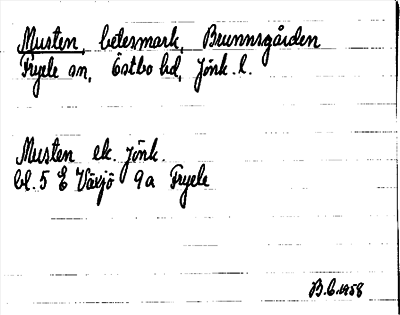 Musten, betesmark, Brunnsgården
Fryele sn, Östbo hd, Jönk. l.
Musten ek. Jönk.
bl. 5 E Växjö 9a Fryele
B.C. 1958